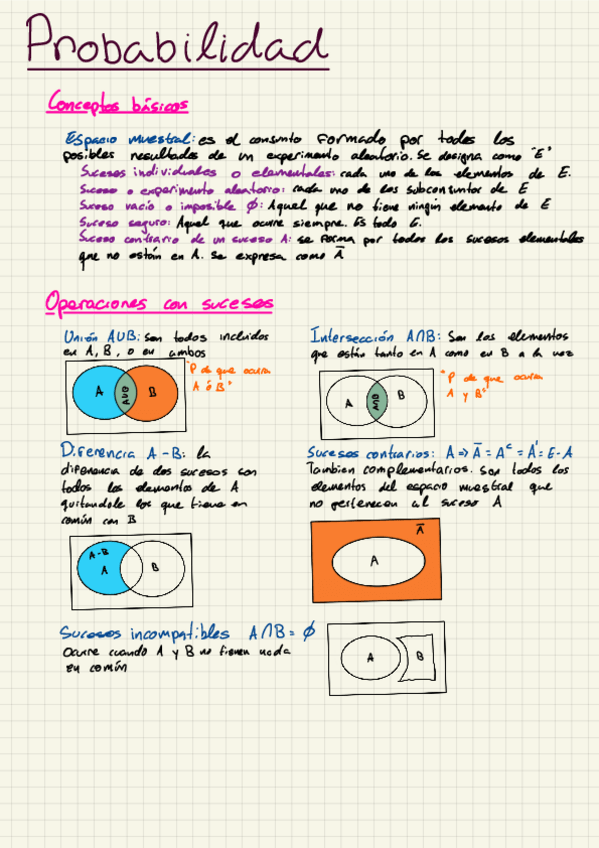 Probabilidad
Conceptos básicos
Espacio muestral: es el conjunto formado por todos los
posibles resultados de un experimento aleatorio. Se designa como "E"
Sucesos individuales o elementales: cada uno de los elementos de E.
Suceso o experimento aleatorio: cada uno de los subconjuntos de E
Suceso vacío o imposible ∅: Aquel que no tiene ningún elemento de E
Suceso seguro: Aquel que ocurre siempre. Es todo E.
Suceso contrario de un suceso A: se forma por todos los sucesos elementales
que no están en A. Se expresa como A̅
Operaciones con sucesos
Unión A∪B: son todos incluidos
en A, B, o en ambos
A
A∪B
B
"P de que ocurra
A ó B"
Intersección A∩B: Son los elementos
que están tanto en A como en B a la vez
A
A∩B
B
"P de que ocurra
A y B"
Diferencia A-B: la
diferencia de dos sucesos son
todos los elementos de A
quitandole los que tiene en
común con B
A-B
A
B
Sucesos contrarios: A => A̅ = Aᶜ = A' = E-A
Tambien complementarios. Son todos los
elementos del espacio muestral que
no pertenecen al suceso A
A̅
A
Sucesos incompatibles A∩B = ∅
Ocurre cuando A y B no tienen nada
en común
A
B